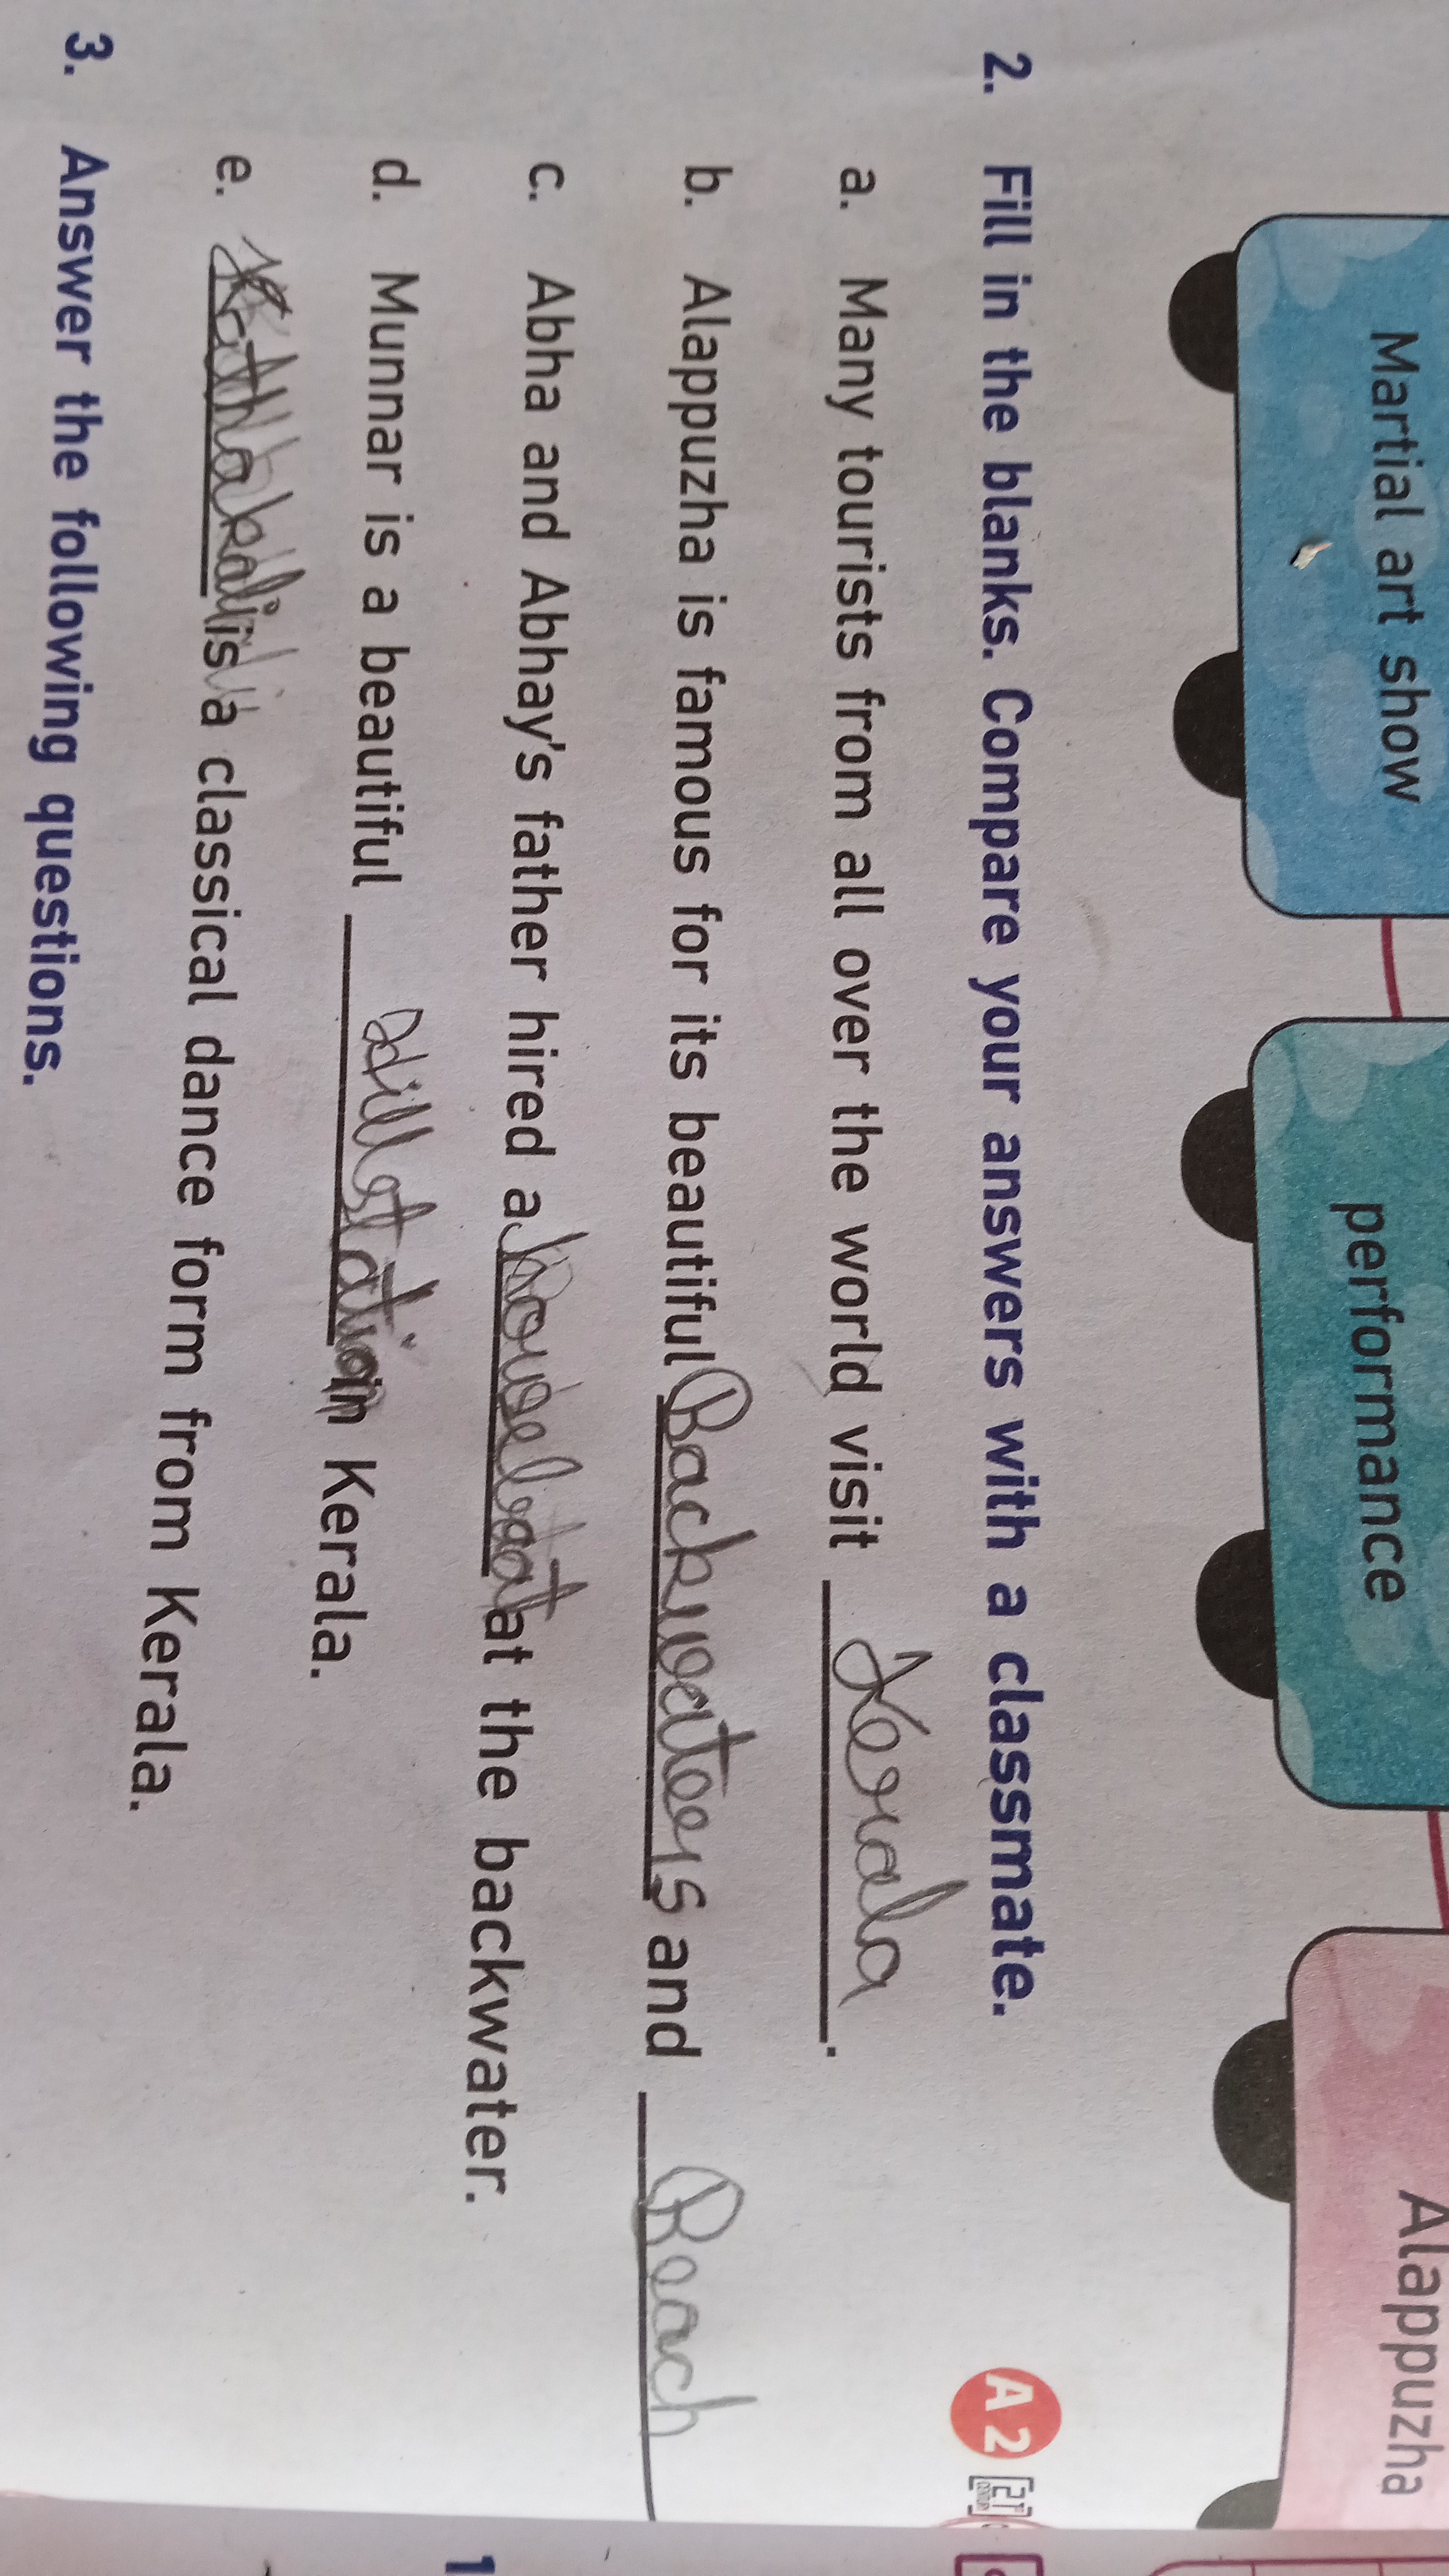 Martial art show
performance
Alappuzha
2. Fill in the blanks. Compare your answers with a classmate. A 2
a. Many tourists from all over the world visit Kerala.
b. Alappuzha is famous for its beautiful Backwaters and Beach
c. Abha and Abhay's father hired a houseboat at the backwater.
d. Munnar is a beautiful hillstation in Kerala.
e. Kathakali is a classical dance form from Kerala.
3. Answer the following questions.
1